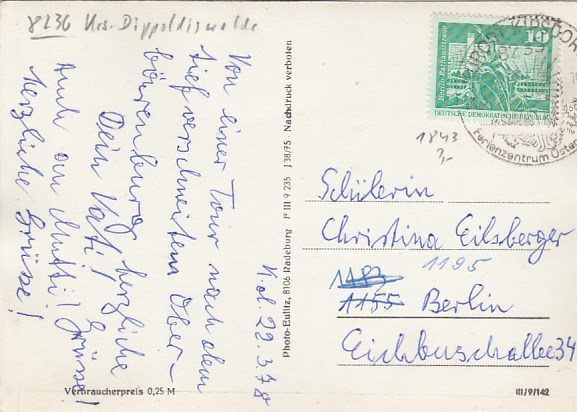 8236 Krs. Dippoldiswalde
K.d. 29.3.78
Von einer Tour nach dem
tiefverschneitem Ober-
bärenburg herzliche
Grüsse!
Dein Vati!
Auch an Mutti!
herzliche Grüsse!
Verbraucherpreis 0,25 M
Photo-Eulitz, 8106 Radeburg P III 9 235 J 38/75 Nachdruck verboten
Berlin-Rathausstraße
10
DEUTSCHE DEMOKRATISCHE REPUBLIK
KURORT KIPSDORF
8239
Ferienzentrum Oster
1843
3,-
Schülerin
Christina Eilsberger
1195
1183
1155 Berlin
Eichbuschallee 34
III/9/142